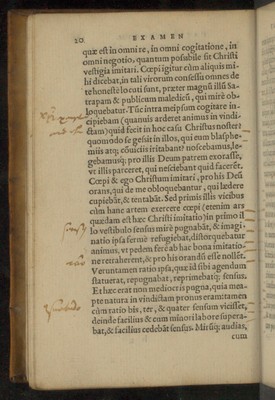 20 EXAMEN
quæ est in omni re, in omni cogitatione, in
omni negotio, quantum possibile sit Christi
vestigia imitari. Cœpi igitur cùm aliquis mi-
hi dicebat, in tali virorum consessu omnes de
te honestè locuti sunt, præter magnū illū Sa-
trapam & publicum maledicū, qui mirè ob-
loquebatur. Tūc intra meipsum cogitare in-
cipiebam (quanuis arderet animus in vindi-
ctam) quid fecit in hoc casu Christus noster?
quomodo se gessit in illos, qui eum blasphe-
miis atq; cōuiciis irritabant? noscebamus, le-
gebamusq; pro illis Deum patrem exorasse,
vt illis parceret, qui nesciebant quid facerēt.
Cœpi & ego Christum imitari, pro his Deū
orans, qui de me obloquebantur, qui lædere
cupiebāt, & tentabāt. Sed primis illis vicibus
cùm hanc artem exercere cœpi (etenim ars
quædam est hæc Christi imitatio) in primo il
lo vestibulo sensus mirè pugnabāt, & imagi-
natio ipsa seruire refugiebat, distorquebatur
animus, vt pedem ferè ab hac bona imitatio-
ne retraherent, & pro his orandū esse nollēt.
Veruntamen ratio ipsa, quæ id sibi agendum
statuerat, repugnabat, reprimebatq; sensus.
Et hæc erat non mediocris pugna, quia mea-
pte natura in vindictam pronus eram: tamen
cùm ratio bis, ter, & quater sensum vicisset,
deinde facilius & cum minori labore supera-
bat, & facilius cedebāt sensus. Mis sq; audias,
cum